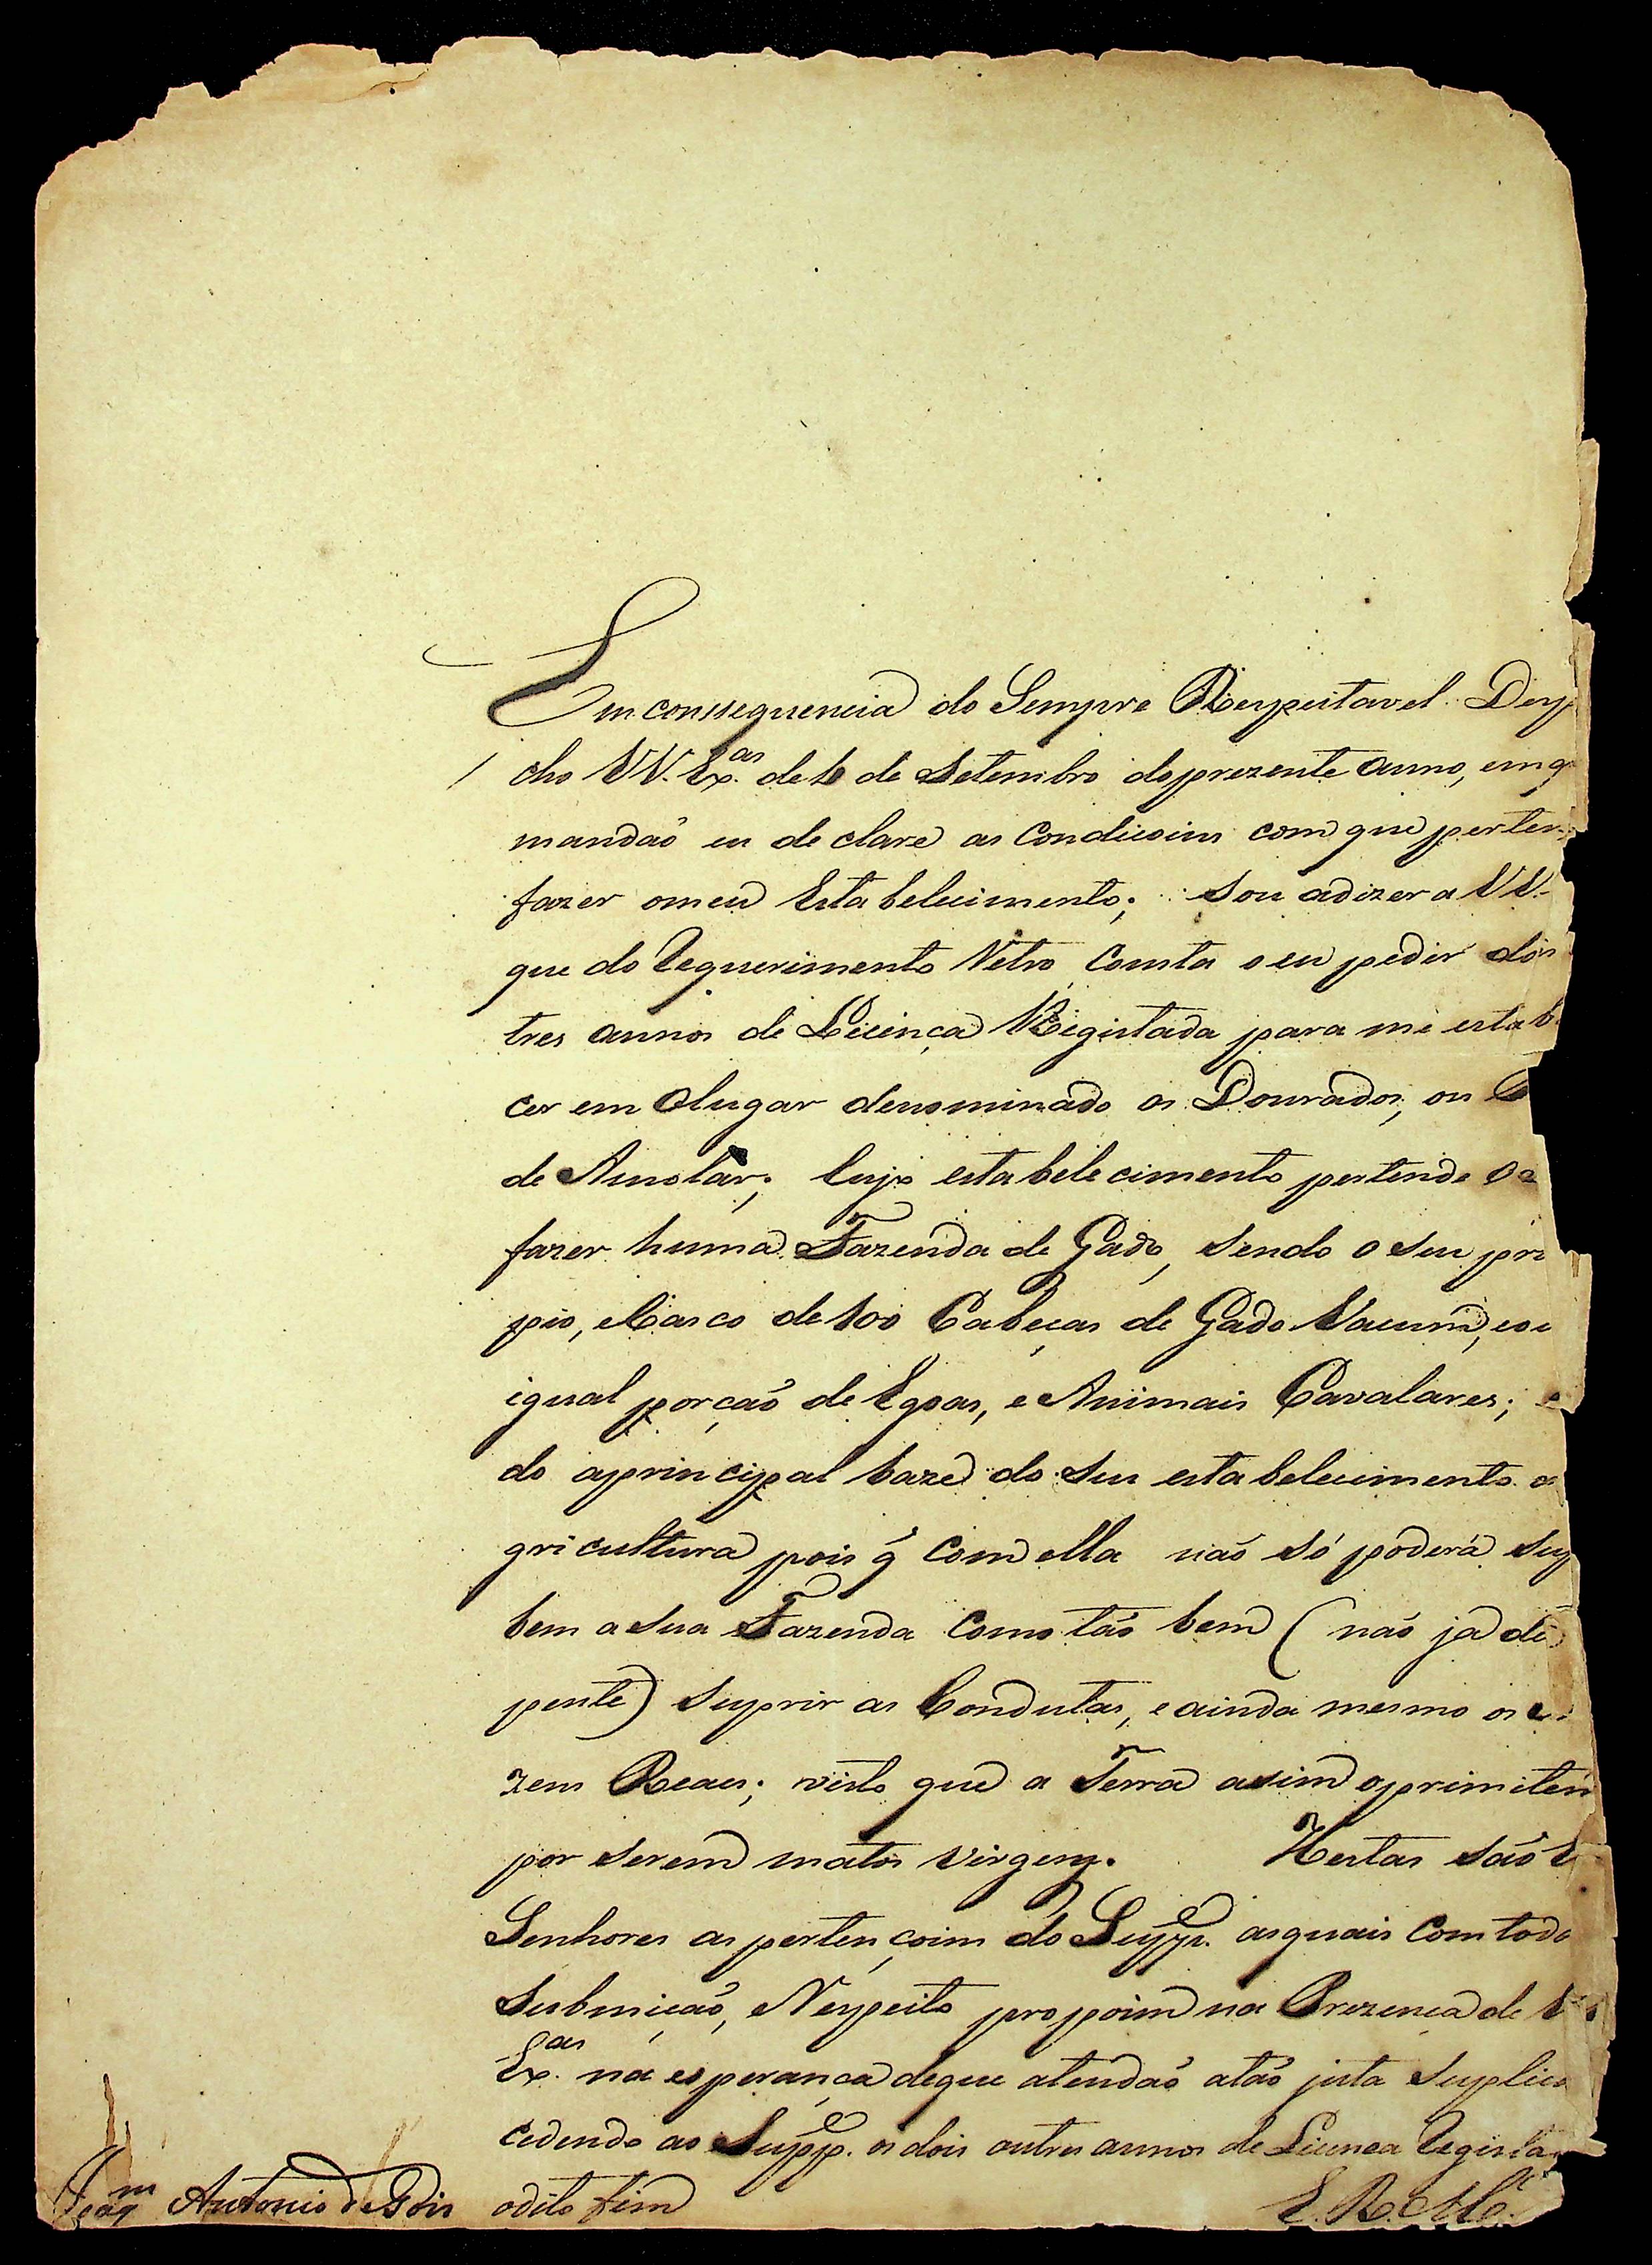 Em conssequencia do Sempre Respeitavel Desp
cho VV. Ex.as de 6 de Setembro do prezente anno, em q
mandaõ eu de clare as Condicoins com que perten
fazer o meu Esta belecimento; Sou adizer a VV.
que do Requerimento Retro Consta o eu pedir dois
tres annos de Licença Registada para me estab
cer em O lugar denominado os Dourados, ou
de Amolár; Cujo esta bele cimento pertende o
fazer huma Fazenda de Gado, Sendo o Seu pri
pio, e Casco de 100 Cabeças de Gado Vacum, e
igual porçaõ de Egoas, e Animais Cavalares;
do a principal baze do Seu esta belecimento a
gricultura pois q̃ Com ella naõ Só poderá Sup
bem a Sua Fazenda Como taõ bem ( naõ já de
pente) Suprir as Condutas, e ainda mesmo os
zens Reaes; visto que a Terra asim o primiten
por Serem matos Virgens. Hestas Saõ
Senhores as pertençoins do Supp.e as quais Com toda
Submiçaõ, e Respeito pro poim na Prezença de
Ex.as na esperança de que atendaõ a taõ justa Suplica
cedendo ao Supp.e os dois outres annos de Licenca Regista
Joaq.m Antonio de Gois odito fim E. R. M.ce